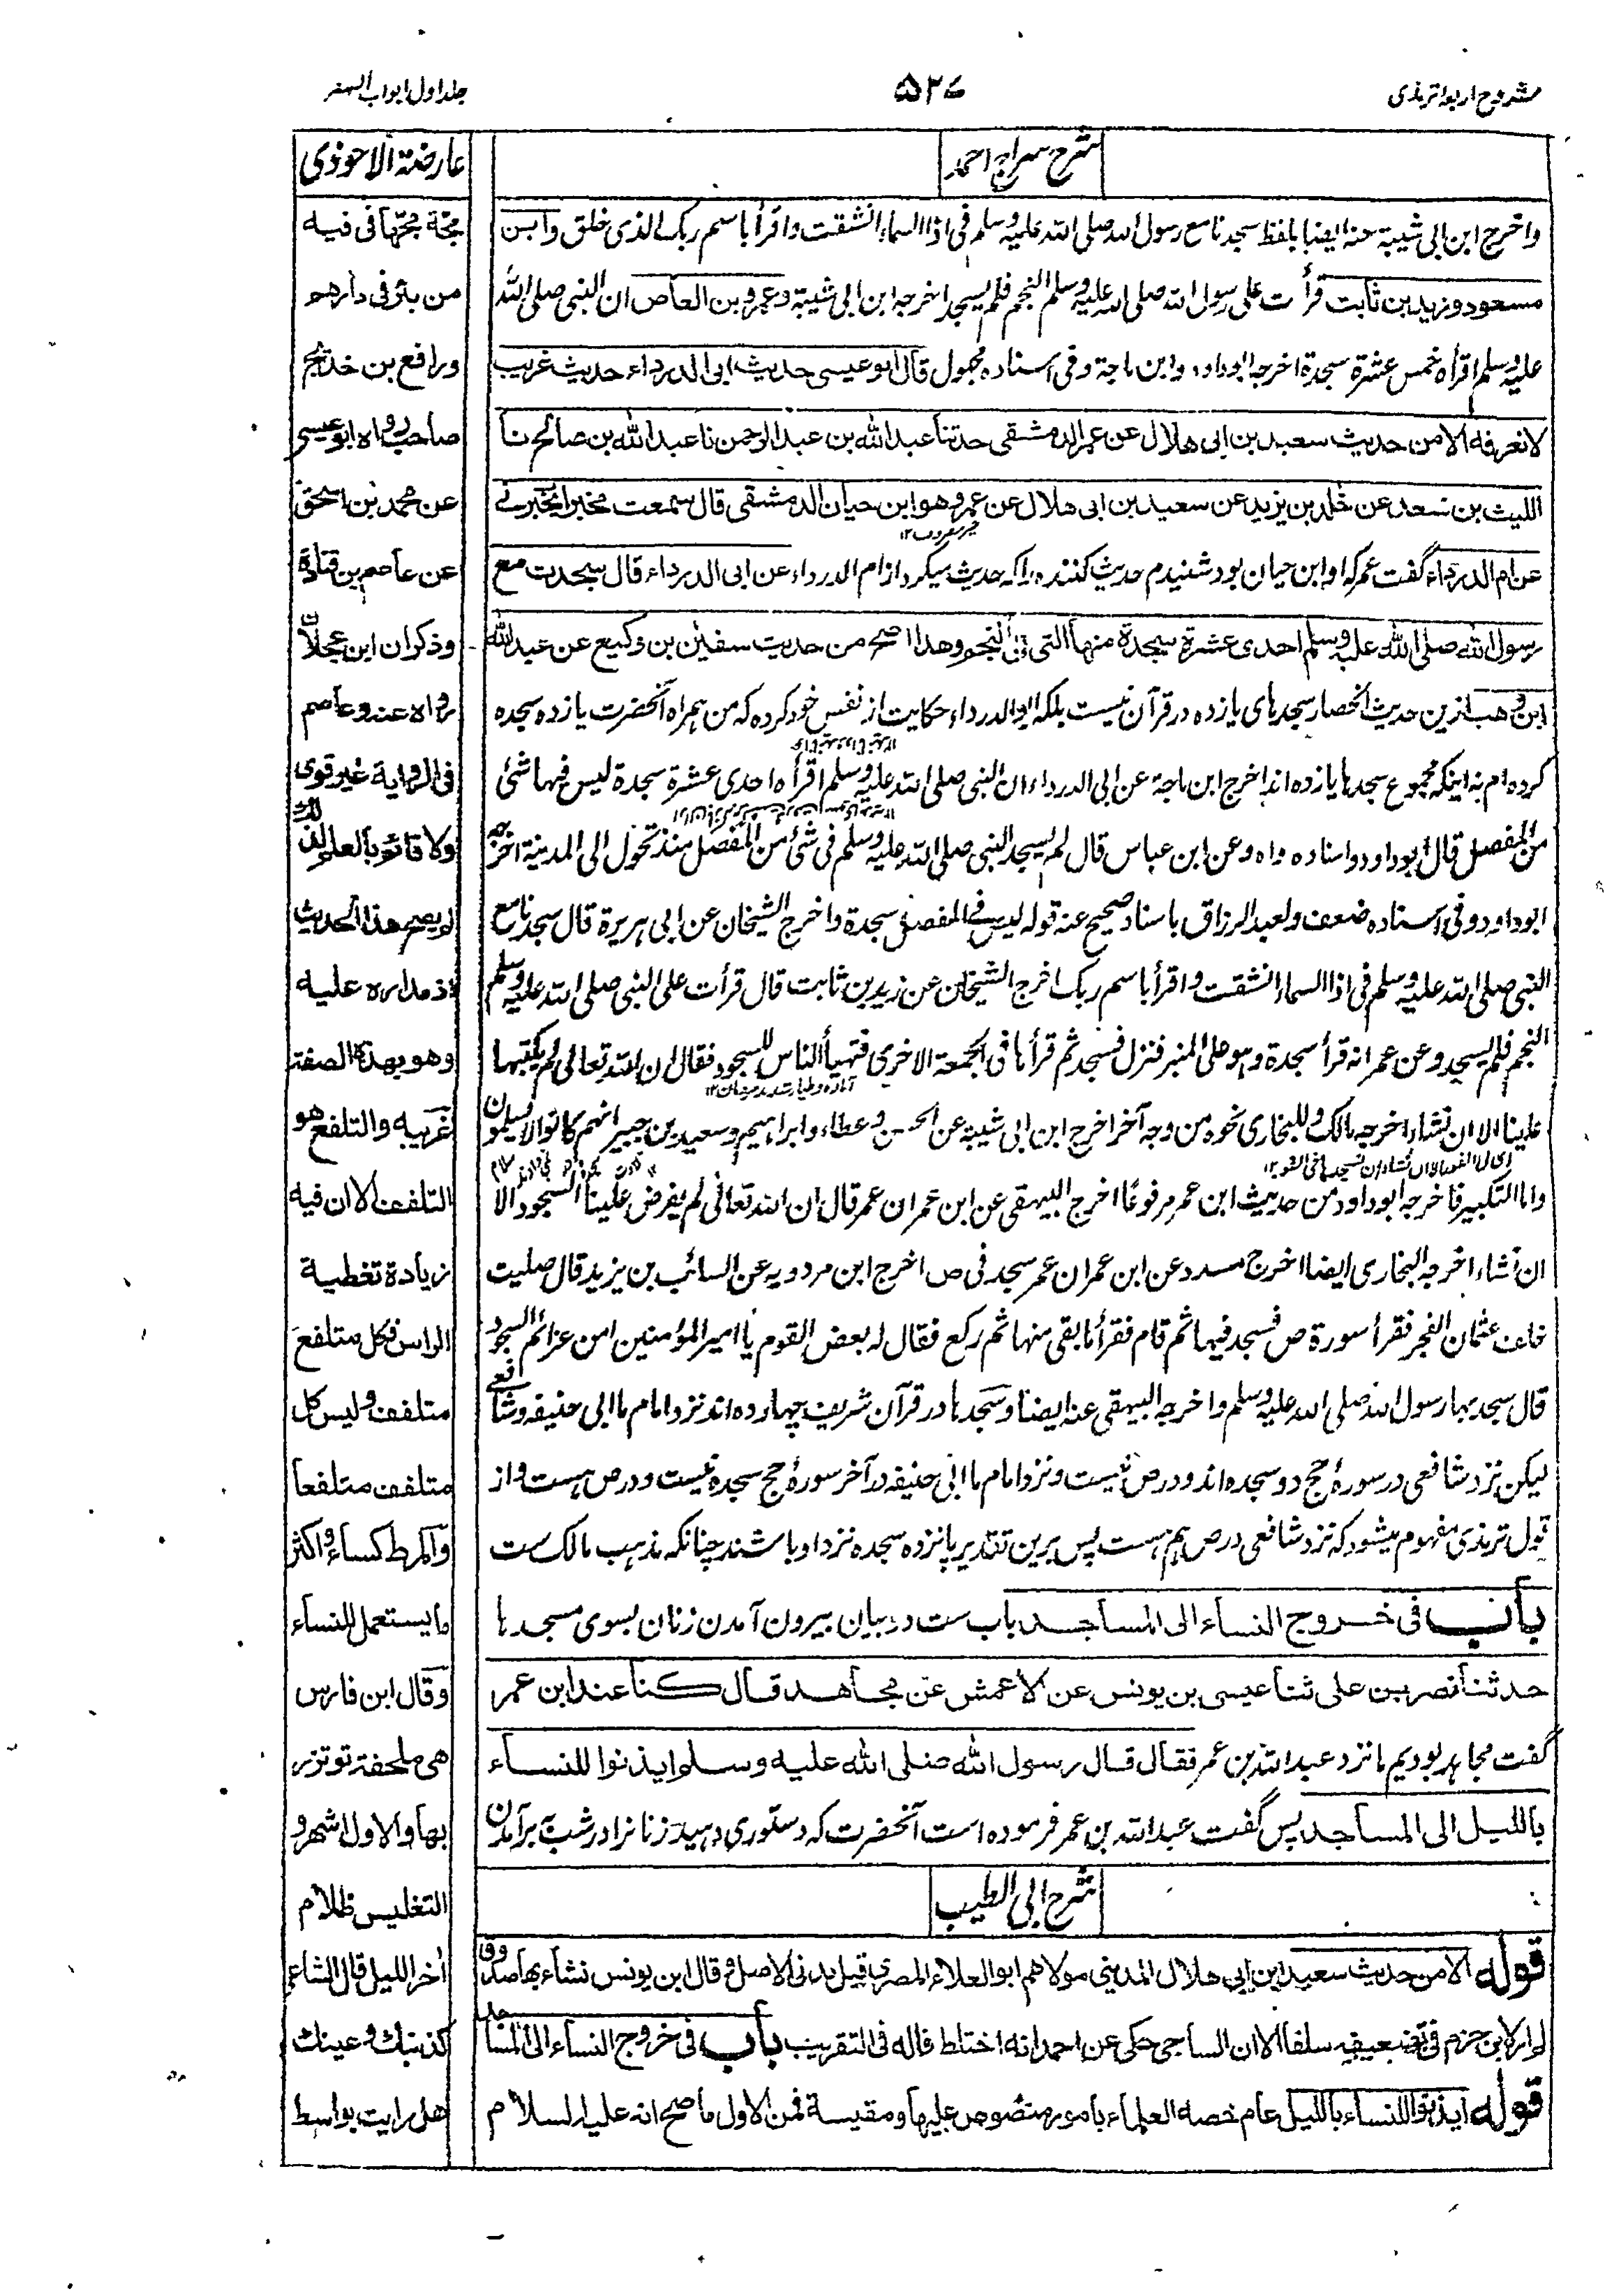 مشروح اربعہ ترمذی
۵۲۷
جلد اول ابواب السفر
شرح سراج احمد
واخرج ابن ابی شیبة عنہ ایضا بلفظ سجدنا مع رسول اللہ صلی اللہ علیہ وسلم فی اذا السماء انشقت واقرأ باسم ربک الذی خلق وابن
مسعود وزید بن ثابت قرأت علی رسول اللہ صلی اللہ علیہ وسلم النجم فلم یسجد اخرجہ ابن ابی شیبة وعمرو بن العاص ان النبی صلی اللہ
علیہ وسلم اقرأہ خمس عشرة سجدة اخرجہ ابوداود وابن ماجة وفی اسنادہ مجہول قال ابو عیسی حدیث ابی الدرداء حدیث غریب
لا نعرفه الا من حدیث سعید بن ابی هلال عن عمر الدمشقی حدثنا عبد الله بن عبد الرحمن نا عبد الله بن صالح نا
اللیث بن سعد عن خلد بن یزید عن سعید بن ابی هلال عن عمر وهو ابن حیان الدمشقی قال سمعت مخبرا یخبرنی
غیر معروف ۱۲
عن ام الدرداء گفت عمر کہ او ابن حیان بود شنیدم حدیث کنندہ را کہ حدیث میکرد از ام الدرداء عن ابی الدرداء قال سجدت مع
رسول الله صلی الله علیه وسلم احدی عشرة سجدة منها التی فی النجم وهذا اصح من حدیث سفین بن وکیع عن عبد الله
ابن وهب ازین حدیث انحصار سجدہای یازدہ در قرآن نیست بلکہ ابو الدرداء حکایت از نفس خود کردہ کہ من ہمراہ آنحضرت یازدہ سجدہ
کردہ ام نہ اینکہ مجموع سجدہا یازدہ اند اخرج ابن ماجة عن ابی الدرداء ان النبی صلی اللہ علیہ وسلم اقرأہ احدی عشرة سجدة لیس فیہا شئ
من المفصل قال ابوداود واسنادہ واہ وعن ابن عباس قال لم یسجد النبی صلی اللہ علیہ وسلم فی شئ من المفصل منذ تحول الی المدینة اخرجہ
ابوداود وفی اسنادہ ضعف ولعبد الرزاق باسناد صحیح عنہ قولہ لیس فی المفصل سجدة واخرج الشیخان عن ابی ہریرة قال سجدنا مع
النبی صلی اللہ علیہ وسلم فی اذا السماء انشقت واقرأ باسم ربک اخرج الشیخان عن زید بن ثابت قال قرأت علی النبی صلی اللہ علیہ وسلم
النجم فلم یسجد وعن عمر انہ قرأ سجدة وہو علی المنبر فنزل فسجد ثم قرأہا فی الجمعة الاخری فتہیأ الناس للسجود فقال ان اللہ تعالی لم یکتبہا
علینا الا ان نشاء اخرجہ مالک وللبخاری نحوہ من وجہ آخر اخرج ابن ابی شیبة عن الحسن وعطاء وابراہیم وسعید بن جبیر انہم کانوا لا یسلمون
واما التکبیر فاخرجہ ابوداود من حدیث ابن عمر مرفوعًا اخرج البیہقی عن ابن عمر ان عمر قال ان اللہ تعالی لم یفرض علینا السجود الا
ان نشاء اخرجہ البخاری ایضا اخرج مسدد عن ابن عمر ان عمر سجد فی ص اخرج ابن مردویہ عن السائب بن یزید قال صلیت
خلف عثمان الفجر فقرأ سورة ص فسجد فیہا ثم قام فقرأ ما بقی منہا ثم رکع فقال لہ بعض القوم یا امیر المؤمنین امن عزائم السجود
قال سجد بہا رسول اللہ صلی اللہ علیہ وسلم واخرجہ البیہقی عنہ ایضا وسجدہا در قرآن شریف چہاردہ اند نزد امام ما ابی حنیفہ وشافعی
لیکن نزد شافعی در سورۂ حج دو سجدہ اند ودر ص نیست ونزد امام ما ابی حنیفہ در آخر سورۂ حج سجدہ نیست ودر ص ہست واز
قول ترمذی مفہوم میشود کہ نزد شافعی در ص ہم ہست پس برین تقدیر پانزدہ سجدہ نزد او باشند چنانکہ مذہب مالک ست
باب فی خروج النساء الی المساجد باب ست در بیان بیرون آمدن زنان بسوی مسجدہا
حدثنا نصر بن علی ثنا عیسی بن یونس عن الاعمش عن مجاهد قال کنا عند ابن عمر
گفت مجاہد بودیم ما نزد عبد اللہ بن عمر فقال قال رسول الله صلی الله علیه وسلم ایذنوا للنساء
باللیل الی المساجد پس گفت عبد اللہ بن عمر فرمودہ است آنحضرت کہ دستوری دہید زنانرا در شب برآمدن
شرح ابی الطیب
قوله الا من حدیث سعید ابن ابی هلال المدینی مولاهم ابو العلاء المصری قیل مدنی الاصل وقال ابن یونس نشاء بها صدوق
لم ار لابن حزم فی تضعیفه سلفا الا ان الساجی حکی عن احمد انه اختلط قاله فی التقریب باب فی خروج النساء الی المساجد
قوله ایذنوا للنساء باللیل عام خصه العلماء بامور منصوص علیها ومقیسة فمن الاول ما صح انه علیه السلام
عارضة الاحوذی
مجة مجها فی فیه
من بئر فی دارهم
ورافع بن خدیج
صاحب رواه ابو عیسی
عن محمد بن اسحق
عن عاصم بن قتادة
وذکر ان ابن عجلان
رواه عنه وعاصم
فی الروایة غیر قوی
ولا قائم بالعلم لذلك
لم یصح هذا الحدیث
اذ مداره علیه
وهو بهذه الصفة
غریبه والتلفع هو
التلفف الا ان فیه
زیادة تغطیة
الراس فکل متلفع
متلفف ولیس کل
متلفف متلفعا
والمرط کساء واکثر
ما یستعمل للنساء
وقال ابن فارس
هی ملحفة توتزر
بها والاول اشهر و
التغلیس ظلام
اخر اللیل قال الشاعر
کذبتك عینك
هل رایت بواسط